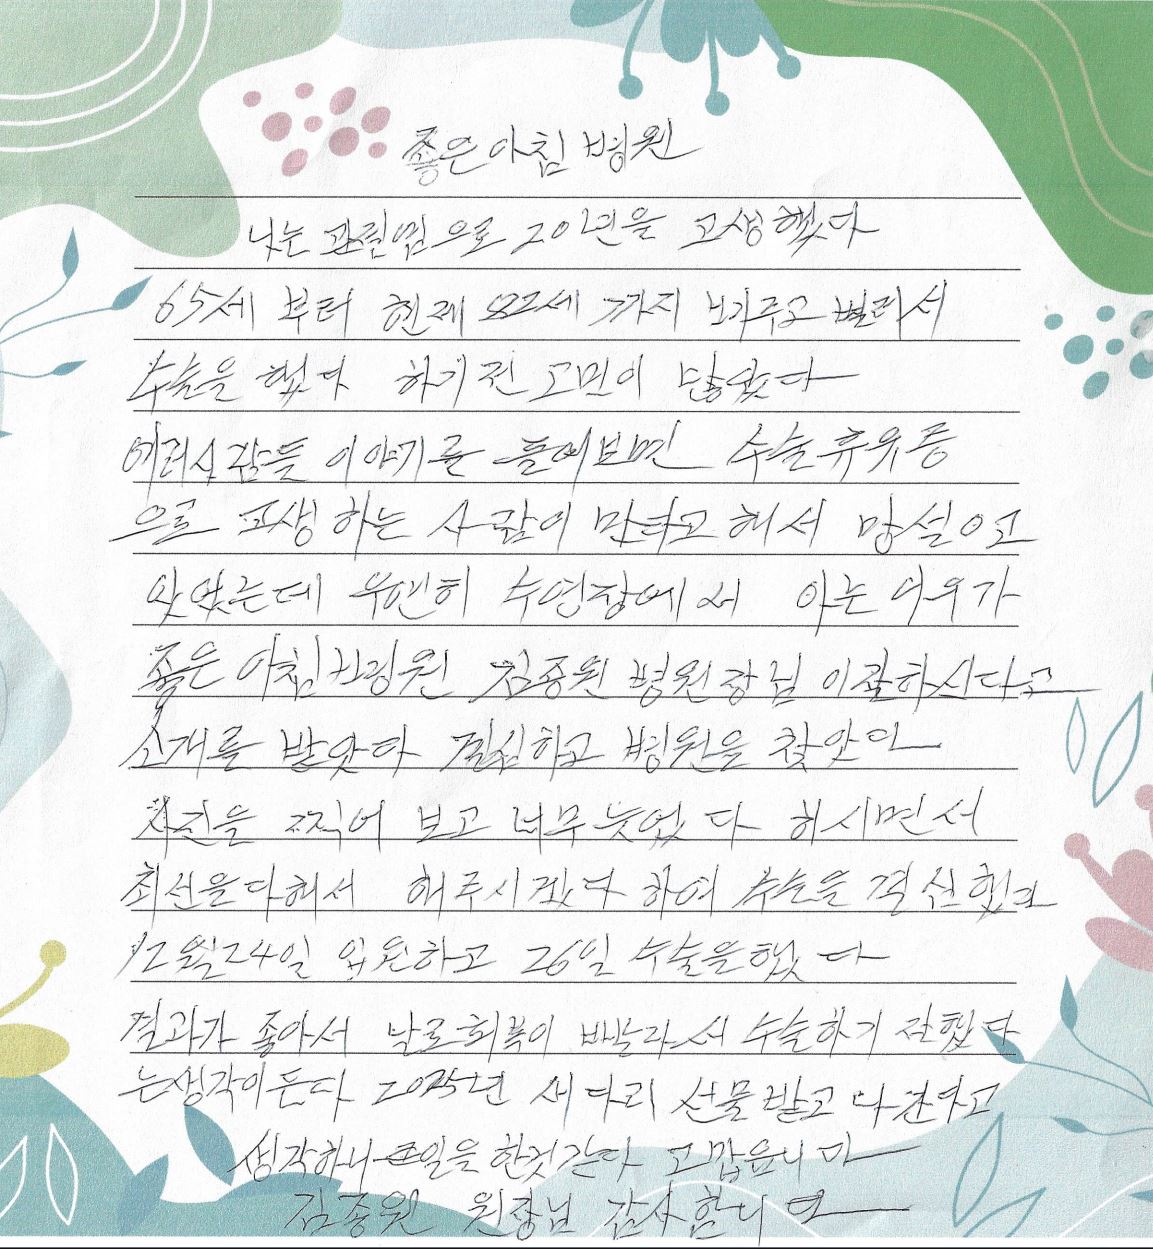 좋은아침 병원
나는 관절염으로 20년을 고생했다
65세 부터 현재 82세 까지 버티고 별러서
수술을 했다 하기전 고민이 많았다
여러사람들 이야기를 들어보면 수술휴유증
으로 고생 하는 사람이 많타고 해서 망설이고
있었는데 우연히 수영장에서 아는 아우가
좋은아침병원 김종원 병원장님 이잘하신다고
소개를 받았다 결심하고 병원을 찾았다
사진을 찍어 보고 너무늦었다 하시면서
최선을다해서 해주시겠다 하여 수술을 결심했다
12월24일 입원하고 26일 수술을했다
결과가 좋아서 날로회복이 빨라서 수술하기 잘했다
는생각이든다 2025년 새다리 선물받고 나간다고
생각하니 큰일을 한것같다 고맙읍니다
김종원 원장님 감사합니다